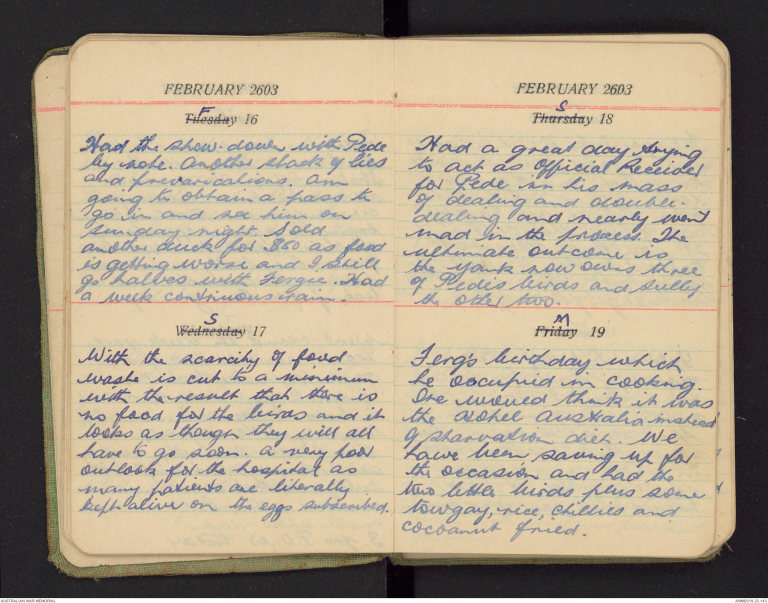 FEBRUARY 2603
F
Tuesday 16
Had the show-down with Pede
by note. Another stack of lies
and prevarications. Am
going to obtain a pass to
go in and see him on
Sunday night. Sold
another duck for $50 as food
is getting worse and I still
go halves with Fergie. Had
a week continuous rain.
S
Wednesday 17
With the scarcity of food
waste is cut to a minimum
with the result that there is
no food for the birds and it
looks as though they will all
have to go soon. A very poor
outlook for the hospital as
many patients are literally
kept alive on the eggs subscribed.
FEBRUARY 2603
S
Thursday 18
Had a great day trying
to act as Official Receiver
for Pede in his mass
of dealing and double-
dealing and nearly went
mad in the process. The
ultimate outcome is
the Yank now owns three
of Pede's birds and Sully
the other two.
M
Friday 19
Ferg's birthday which
he occupied in cooking.
One would think it was
the Hotel Australia instead
of starvation diet. We
have been saving up for
the occasion and had the
two little birds plus some
towgay, rice, chillies and
cocoanut fried.
AUSTRALIAN WAR MEMORIAL